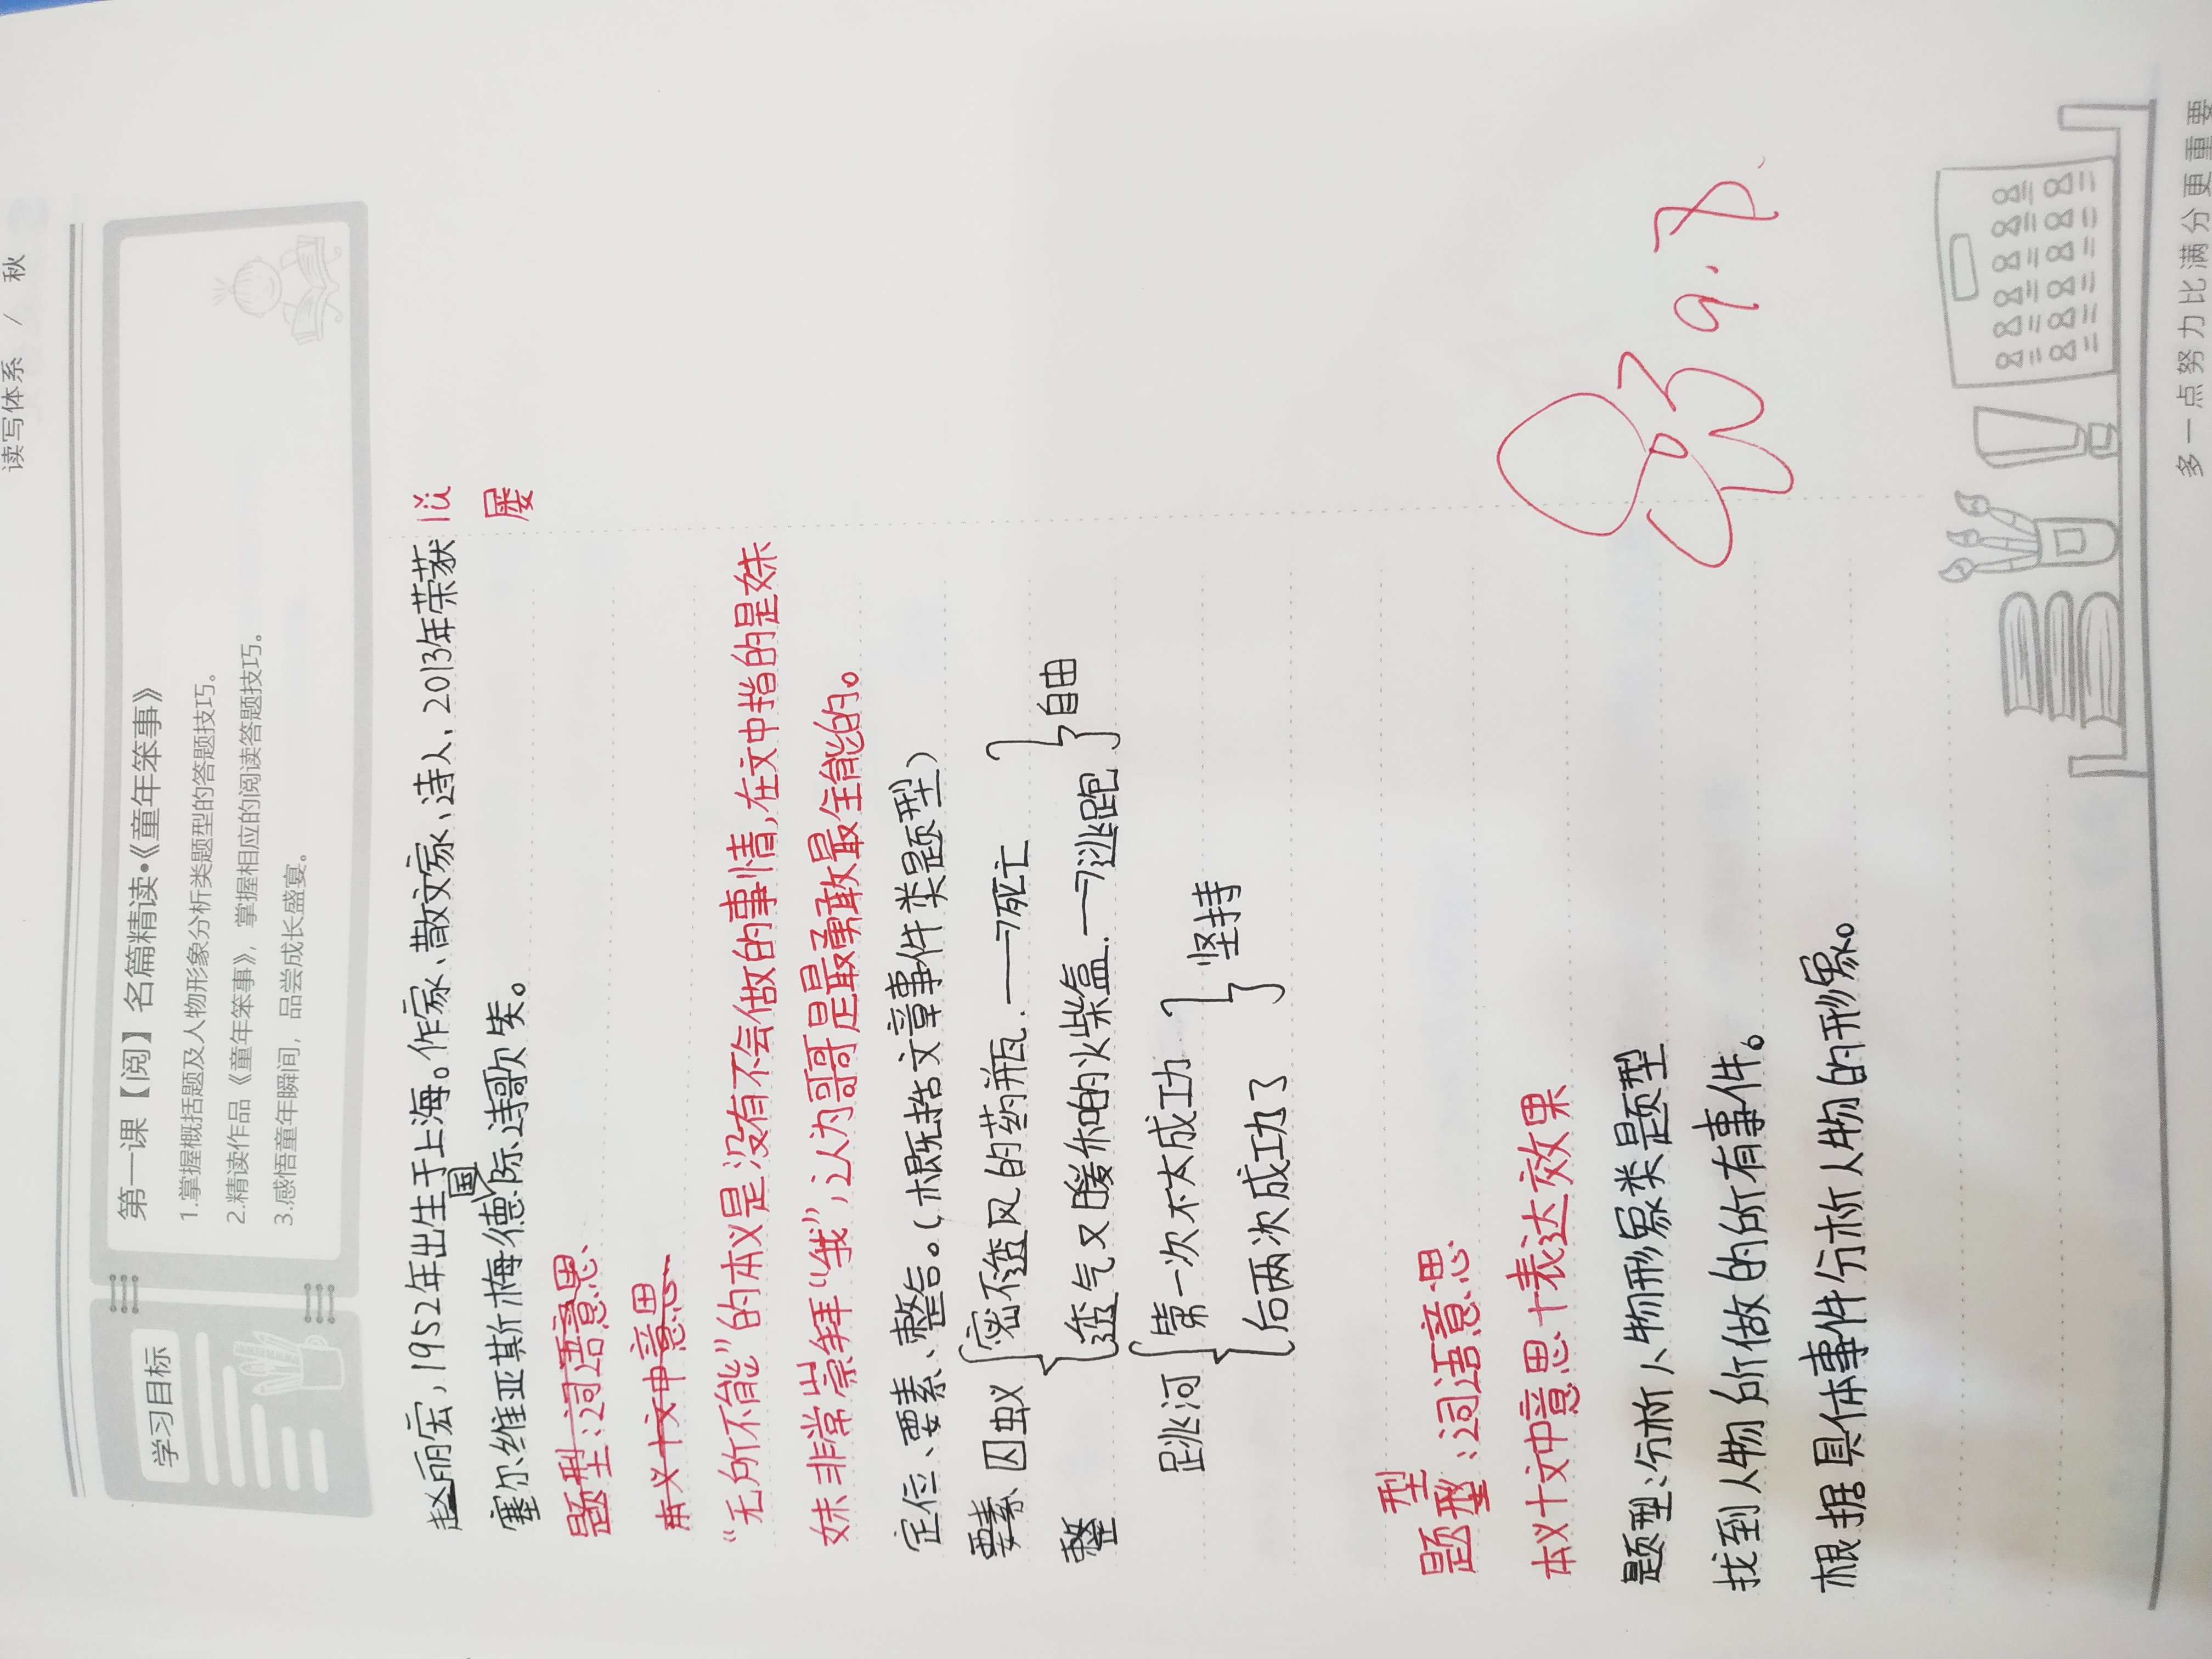 读写体系 / 秋
学习目标
第一课【阅读】名篇精读·《童年笨事》
1.掌握概括题及人物形象分析类题型的答题技巧。
2.精读作品《童年笨事》，掌握相应的阅读答题技巧。
3.感悟童年瞬间，品尝成长盛宴。
赵丽宏，1952年出生于上海。作家、散文家、诗人，2013年荣获
国
塞尔维亚斯梅德际诗歌奖。
屡
题型：词语意思
本义十文中意思
“无所不能”的本义是没有不会做的事情，在文中指的是妹
妹非常崇拜“我”，认为哥哥是最勇敢最全能的。
定位、要素、整合。（概括文章事件类题型）
要素 囚蚁 密不透风的药瓶.—→死亡
整 透气又暖和的火柴盒.—→逃跑 自由
跳河 第一次不太成功
后两次成功了 坚持
型
题型：词语意思
本义十文中意思十表达效果
题型：分析人物形象类题型
找到人物所做的所有事件。
根据具体事件分析人物的形象。
9.7
多一点努力比满分更重要